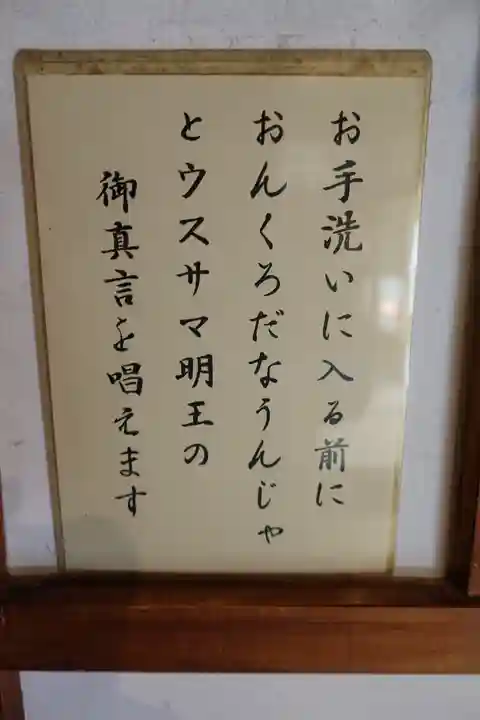 お手洗いに入る前に
おんくろだなうんじゃ
とウスサマ明王の
御真言を唱えます